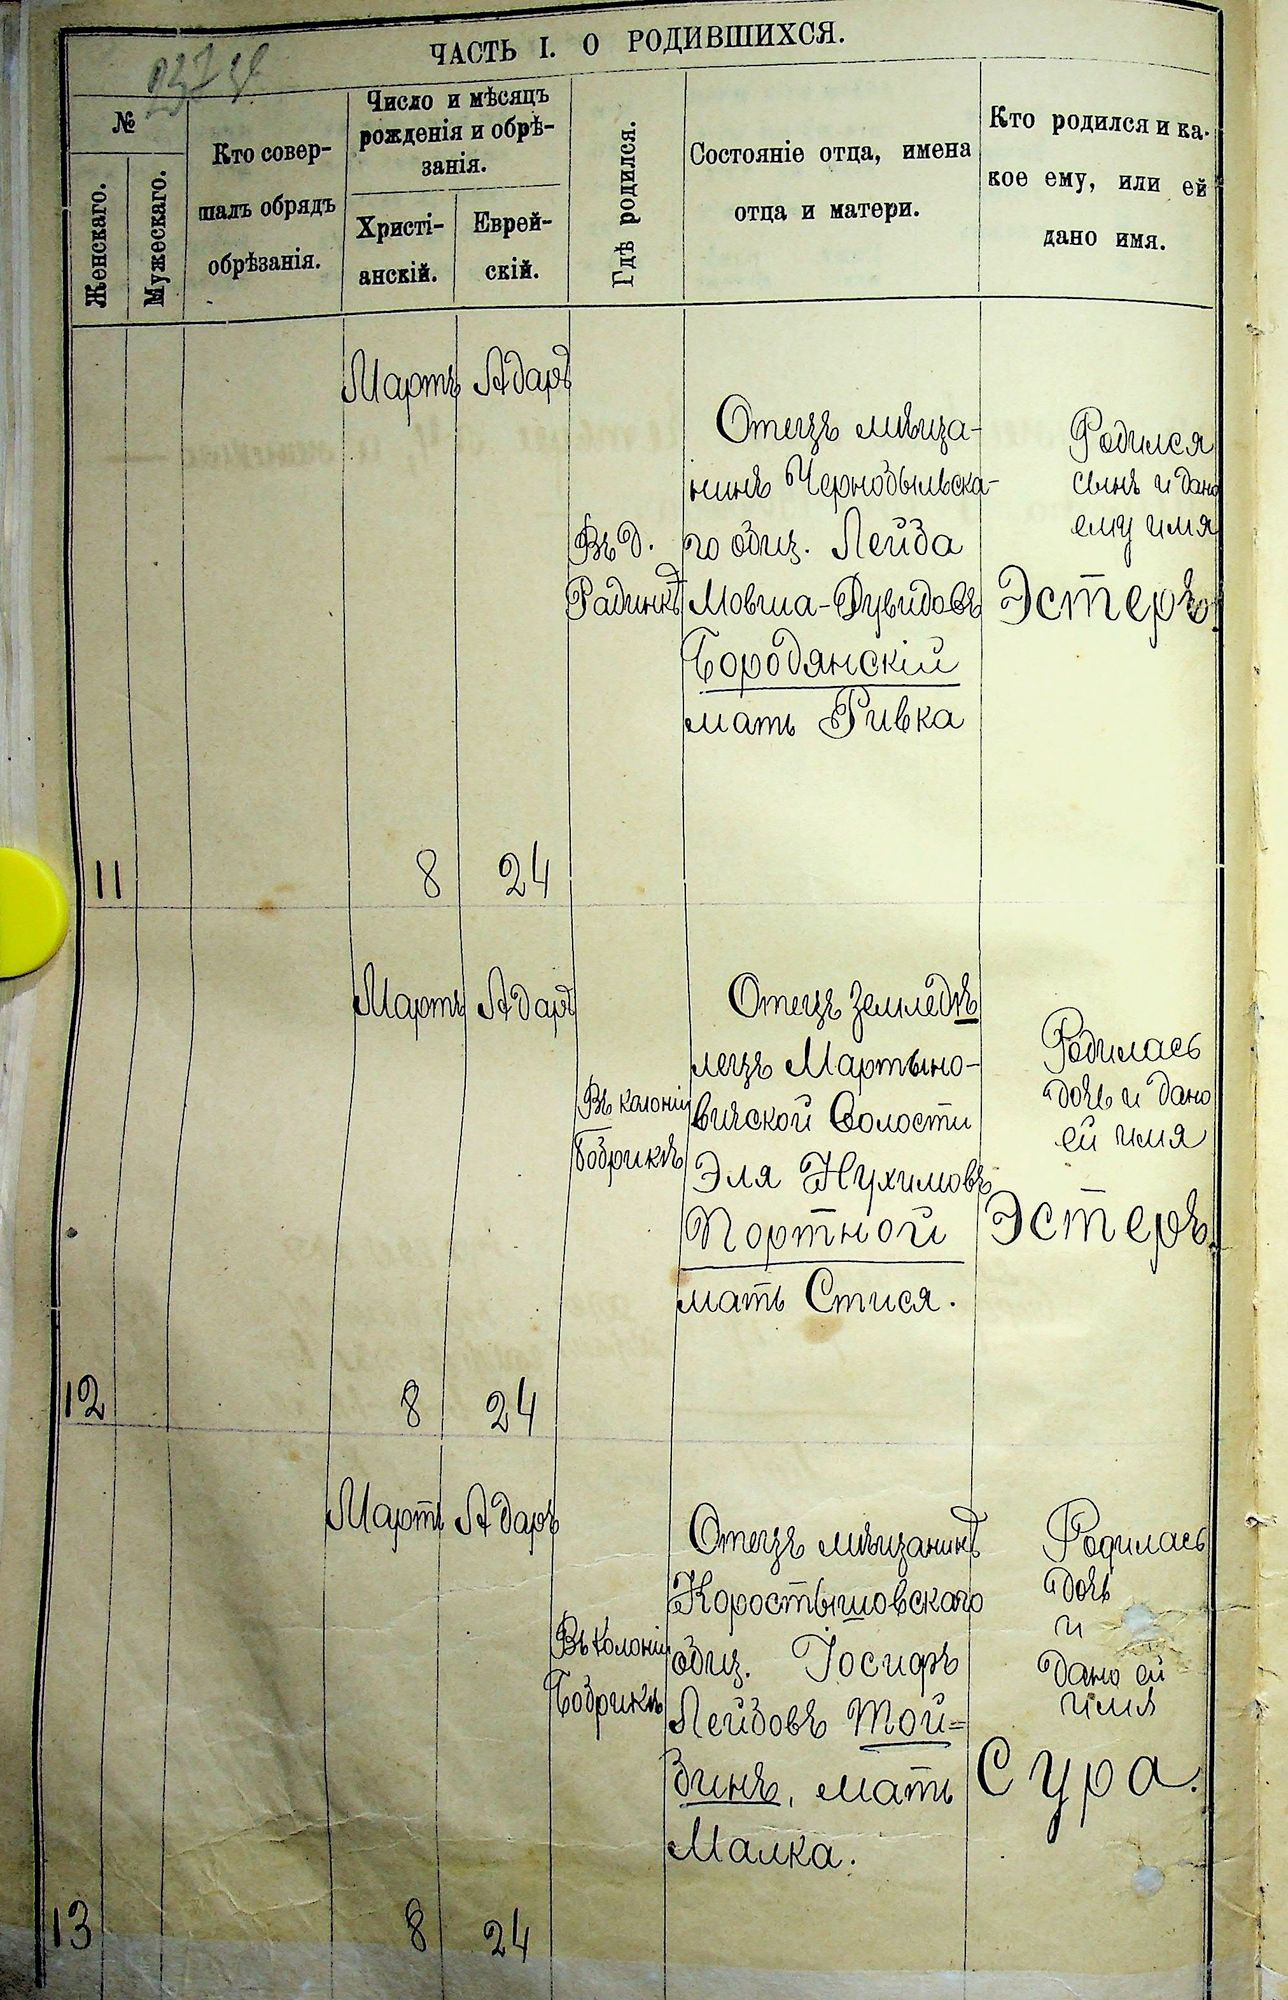 ЧАСТЬ I. О РОДИВШИХСЯ.
№
Женскаго.
Мужескаго.
Кто совер-
шалъ обрядъ
обрѣзанія.
Число и мѣсяцъ
рожденія и обрѣ-
занія.
Христі-
анскій.
Еврей-
скій.
Гдѣ родился.
Состояніе отца, имена
отца и матери.
Кто родился и ка-
кое ему, или ей
дано имя.
11
Мартъ
8
Адаръ
24
Въ д.
Радинкѣ
Отецъ мѣща-
нинъ Чернобыльска-
го общ. Лейба
Мовша-Дувидовъ
Бородянскій
мать Ривка
Родился
сынъ и дано
ему имя
Эстеръ.
12
Мартъ
8
Адаръ
24
Въ колоніи
Бобрикѣ
Отецъ земледѣ
лецъ Мартыно-
вичской Волости
Эля Нухимовъ
Портной
мать Стися.
Родилась
дочь и дано
ей имя
Эстеръ.
13
Мартъ
8
Адаръ
24
Въ колоніи
Бобрикѣ
Отецъ мѣщанинъ
Коростышовскаго
общ. Іосифъ
Лейбовъ Той=
бинъ, мать
Малка.
Родилась
дочь
и
дано ей
имя
Сура.